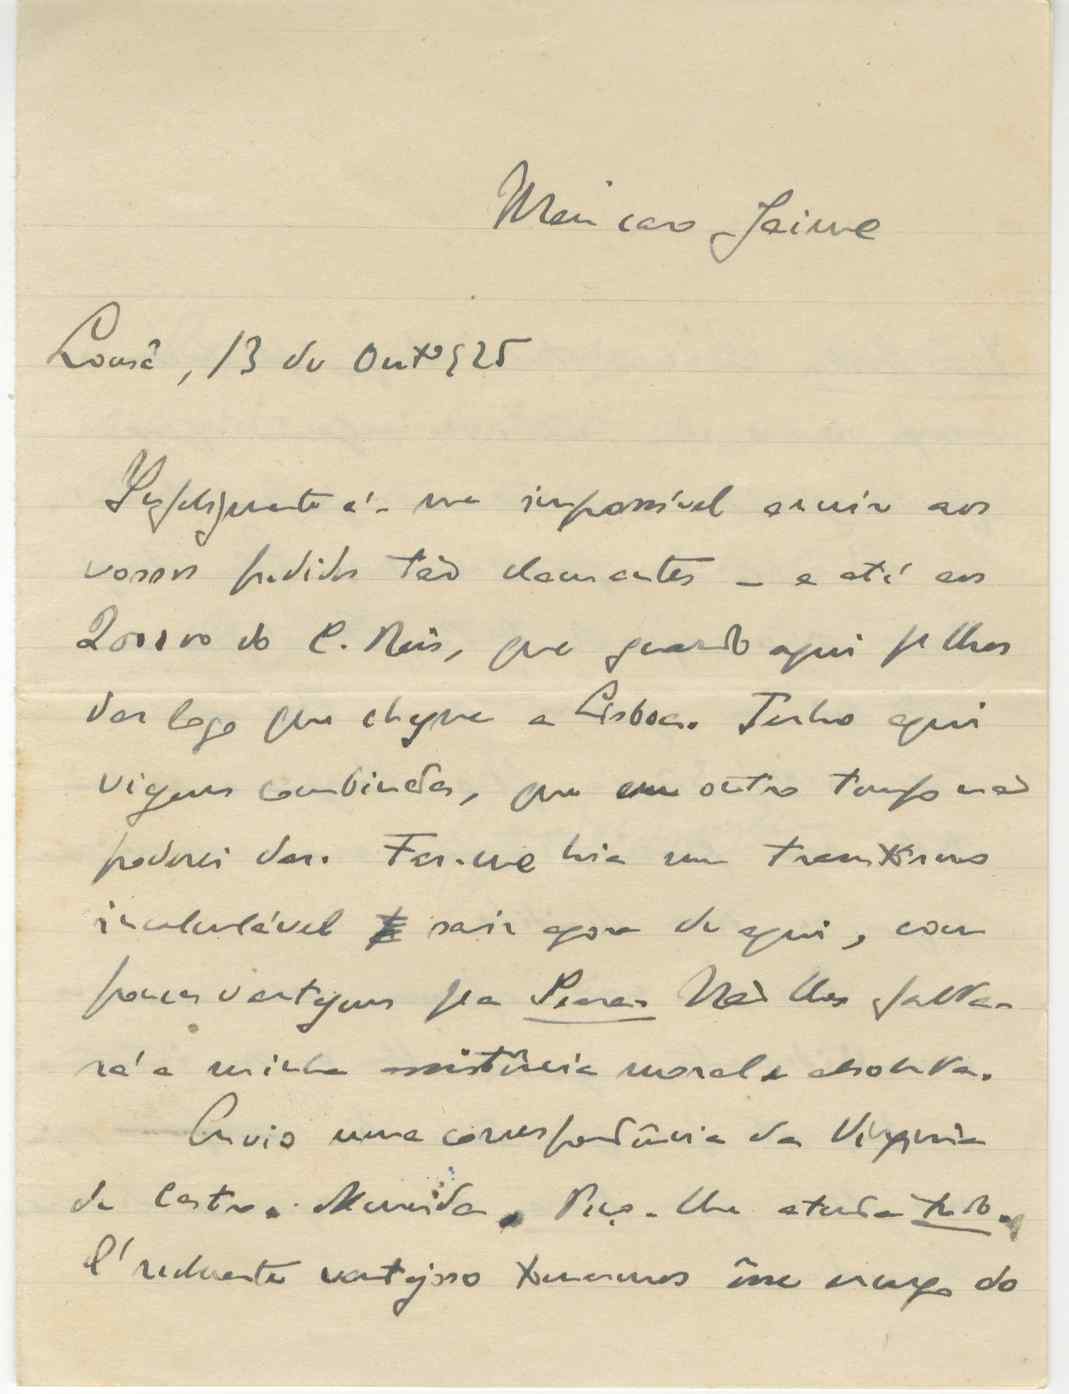 Meu caro Jaime
Lousã, 13 de Outº 925
Infelizmente é-me impossível anuir aos
vossos pedidos tão clamantes - e até aos
do C. Reis, que guardo aqui pª lhos
dar logo que chegue a Lisboa. Tenho aqui
viagens combinadas, que em outro tempo não
poderei dar. Far-me-hia um transtorno
incalculável sair agora de aqui, com
poucas vantagens pª a Seara. Não lhes falta-
rá a minha assistência moral e absoluta.
Envio uma correspondência da Virginia
de Castro e Almeida. Peço-lhe atenda a tudo.
É realmente vantajoso tomarmos êsse encargo do